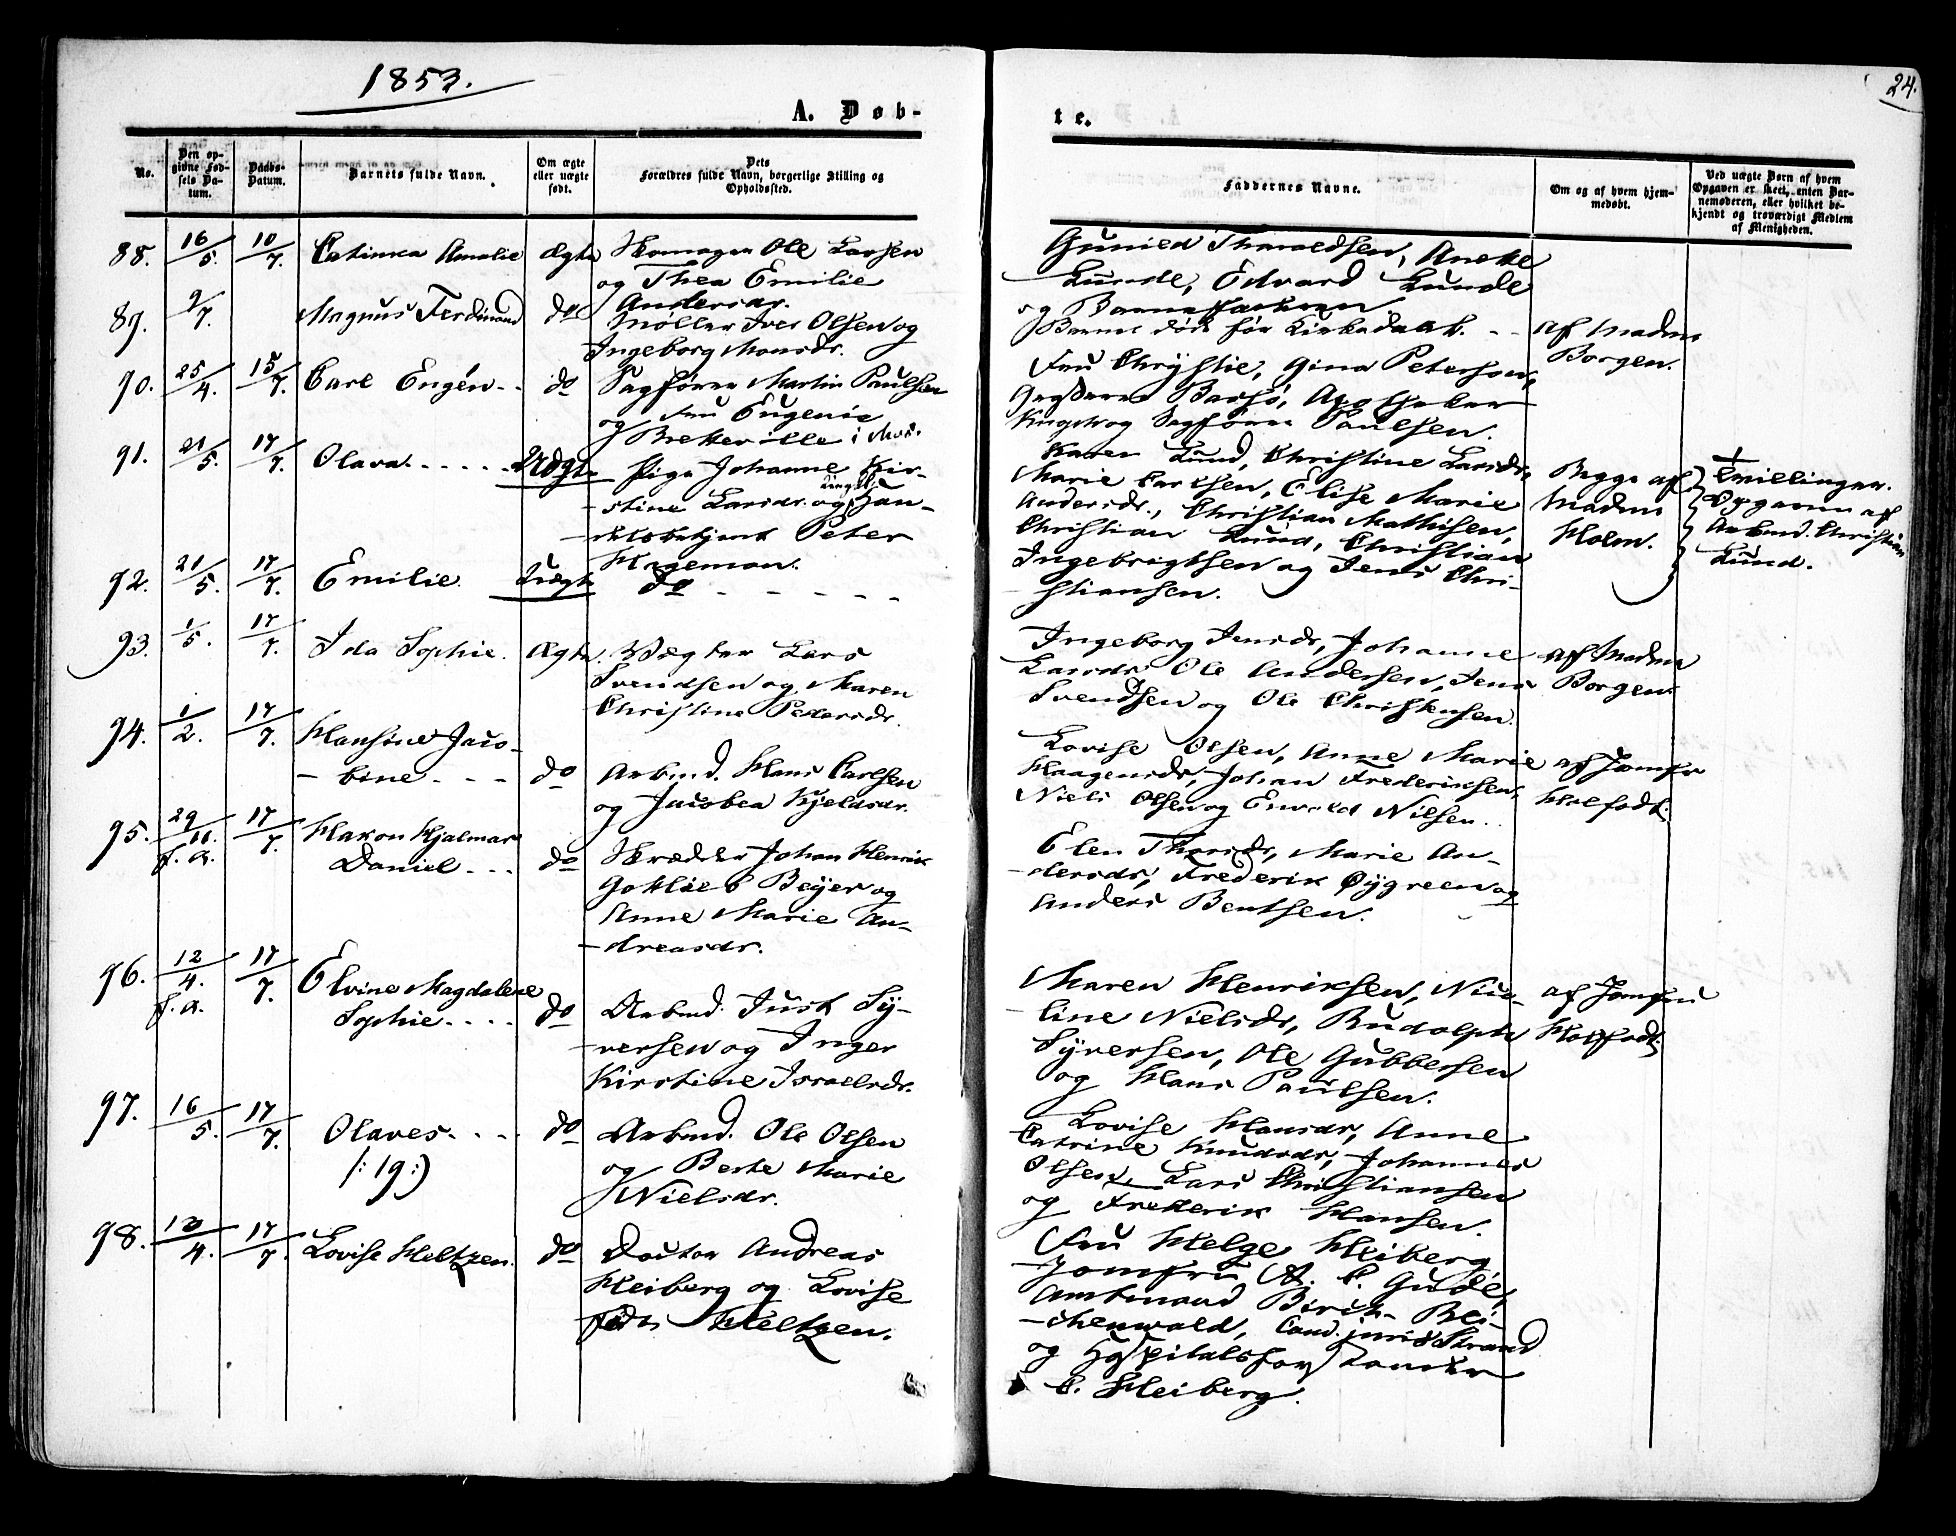 1853.
24.
A. Døb-
te.
No.
Den op-
givne Fød-
sels Da-
tum.
Daabs-
Datum.
Barnets fulde Navn.
Om ægte
eller uægte
født.
Dets
Forældres fulde Navn, borgerlige Stilling og
Opholdssted.
Faddernes Navne.
Om og af hvem hjem-
medøbt.
Ved uægte Børn af hvem
Opgaven er skeet, enten Bar-
nemoderen, eller hvilket be-
kjendt og troværdigt Medlem
af Menigheden.
88. 16/5. 10/7. Catinca Amalie ægte Skomager Ole Larsen
og Thea Emilie
Andersdr.
Gunild Tharaldsen, Anette
Lunde, Edvard Lunde
og Barnefaderen
89. 9/7. Magnus Ferdinand do Møller Iver Olsen og
Ingeborg Monsdr.
Barnet døde før Kirkedaab. - - af Madm
Borgen.
90. 25/4. 15/7. Carl Engén - - do Sagfører Martin Paulsen
og Fru Eugenie
Bretteville i Mos.
Fru Chrystie, Gina Peterson,
Barsó, Apotheker
og Sagfører Paulsen.
91. 21/5. 17/7. Olava - - - - - Uægte Pige Johanne Kir-
stine Larsdr. og Han-
delsbetjent Peter
Hageman.
Karen Lund, Christine Larsdr,
Marie Carlsen, Elise Marie
Andersdr., Christian Mathisen,
Christian Lund, Christian
Ingebrigtsen og Jens Chri-
stiansen.
Begge af
Madm
Holm.
Tvillinger.
Opgaven af
Arbmd. Christian
Lund.
92. 21/5. 17/7. Emilie. Uægte do - - - - -
93. 1/5. 17/7. Ida Sophie. Ægte. Vægter Lars
Svendsen og Maren
Christine Pedersdr.
Ingeborg Jensdr, Johanne
Larsdr, Ole Andersen, Jens
Svendsen og Ole Christensen.
af Madm
Borgen.
94. 1/2. 17/7. Hansine Jaco-
bine - - - do Arbmd. Hans Carlsen
og Jacobea Kjeldsdr.
Lovise Olsen, Anne Marie
Haagensdr, Johan Frederiksen,
Niels Olsen og Enwald Nilsen.
af Jomfr
Holfodt.
95. 29/11. f.a. 17/7. Hakon Hjalmar
Daniel - - - do Skrædder Johan Henrik
Gotlieb Beyer og
Anne Marie An-
dreasdr.
Elen Thorsdr, Marie An-
dersdr, Frederik Øygreen og
Anders Bentsen.
96. 12/4. f.a. 17/7. Elvine Magdalene
Sophie - - - - do Arbmd. Just Sy-
versen og Inger
Kirstine Israelsdr.
Maren Henriksen, Nico-
line Nielsdr, Rudolph
Syversen, Ole Gubbersen
og Hans Paulsen.
af Jomfru
Holfodt.
97. 16/5. 17/7. Olaves - - -
/:19:)
do Arbmd. Ole Olsen
og Berte Marie
Nielsdr.
Lovise Hansdr, Anne
Catrine Knudsdr, Johannes
Olsen, Lars Christiansen
og Frederik Hansen.
98. 13/4. 17/7. Lovise Heltzen. do Doctor Andreas
Heiberg og Lovise
født Heltzen.
Fru Helge Heiberg
Jomfru A. C. Gude,
Amtmand Birch- Rei-
chenwald, Cand. juris Strand
og Hospitalsforstander
C. Heiberg.